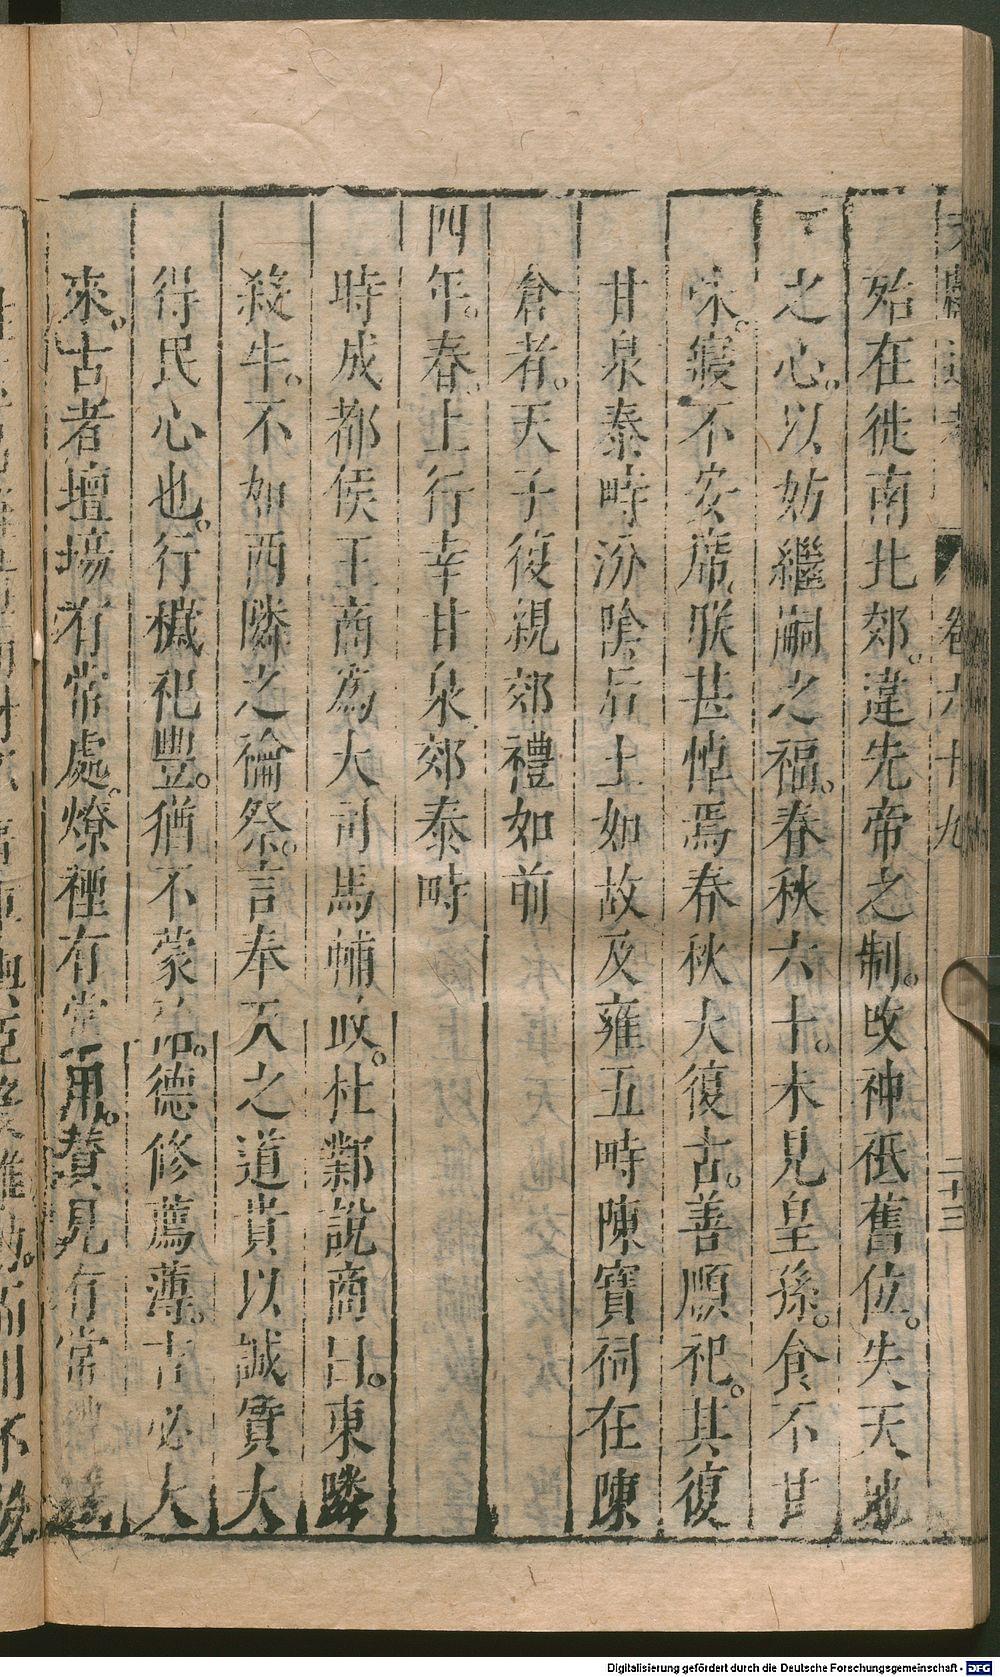 卷六十九
二十三
殆在徙南北郊。違先帝之制。改神祇舊位。失天地
之心。以妨繼嗣之福。春秋六十。未見皇孫。食不甘
味。寢不安席。朕甚悼焉春秋大復古。善順祀。其復
甘泉泰畤汾陰后土如故及雍五畤陳寶祠在陳
倉者。天子復親郊禮如前
四年。春。上行幸甘泉。郊泰畤
時成都侯王商為大司馬輔政。杜鄴說商曰。東鄰
殺牛。不如西隣之禴祭。言奉天之道貴以誠質大
得民心也。行穢祀豐。猶不蒙祐。德修薦薄。吉必大
來。古者壇場有常處。燎禋有常用。贊見有常
Digitalisierung gefördert durch die Deutsche Forschungsgemeinschaft - DFG